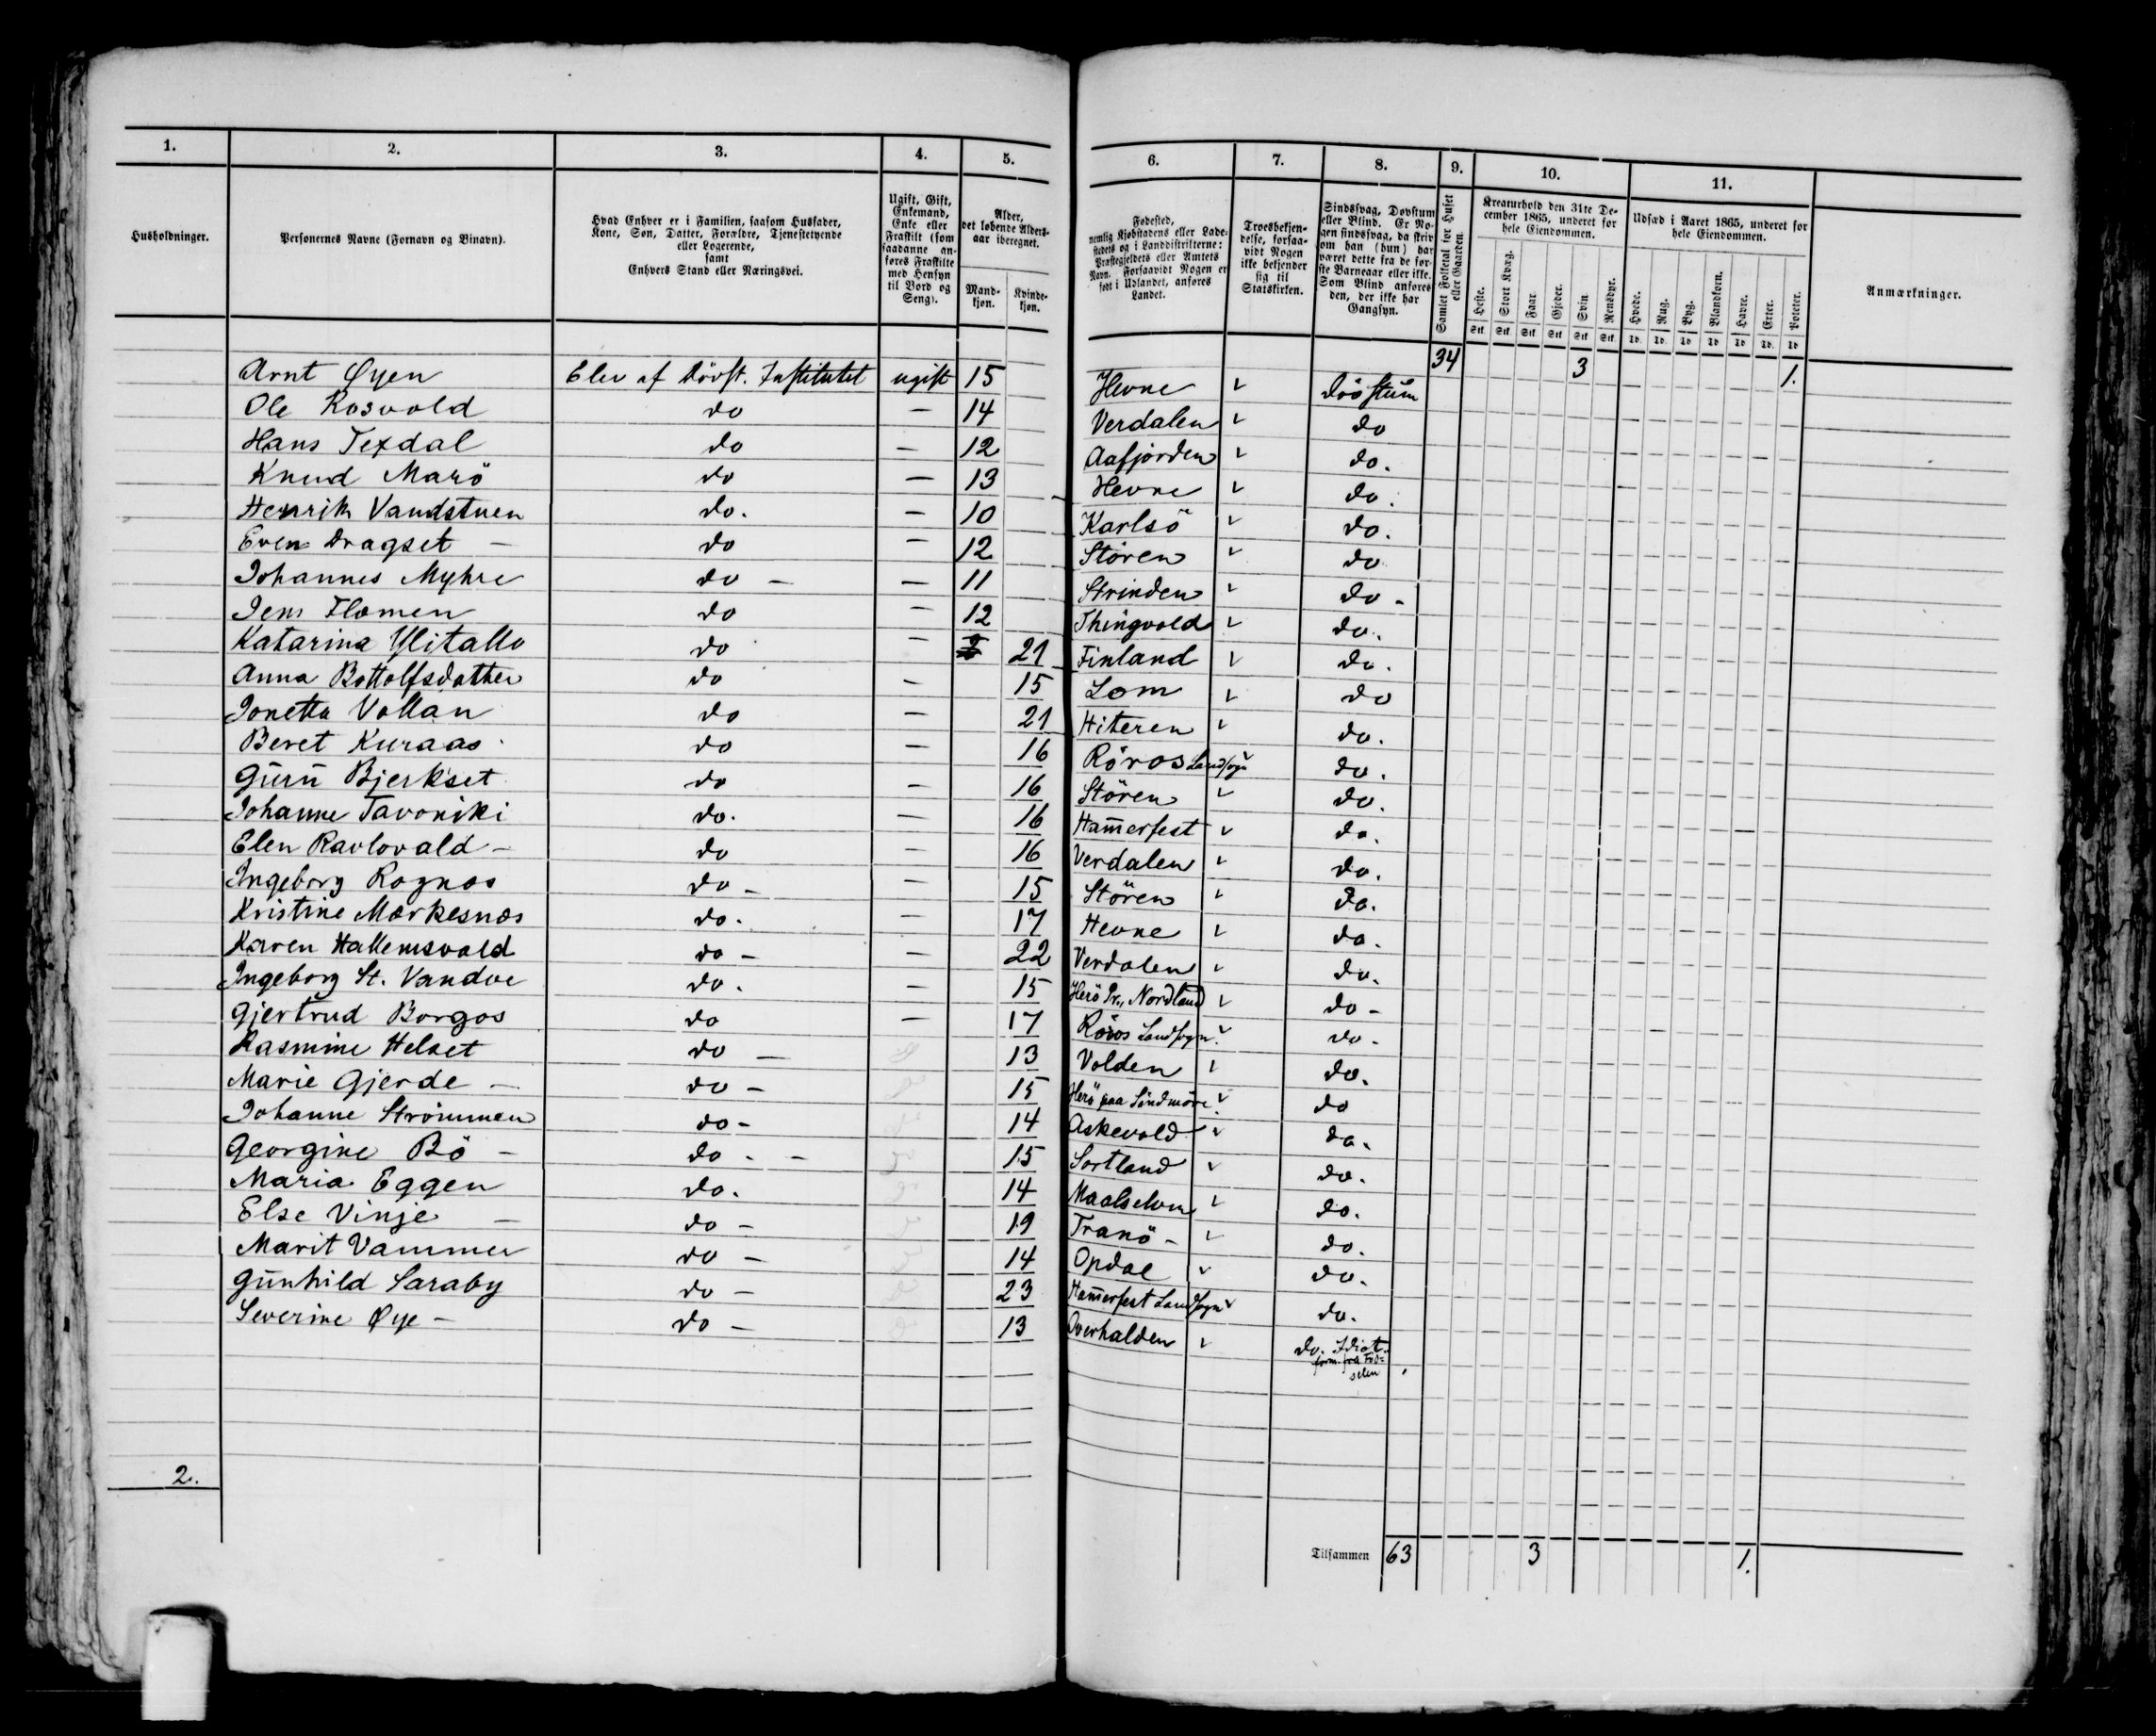 1. 2. 3. 4. 5. 6. 7. 8. 9. 10. 11.
Husholdninger.
Personernes Navne (Fornavn og Binavn).
Hvad Enhver er i Familien, saasom Husfader,
Kone, Søn, Datter, Forældre, Tjenestetyende
eller Logerende,
samt
Enhvers Stand eller Næringsvei.
Ugift, Gift,
Enkemand,
Enke eller
Fraskilt (som
saadanne an-
føres Fraskilte
med Hensyn
til Bord og
Seng).
Alder,
det løbende Alders-
aar iberegnet.
Mand-
kjøn.
Kvinde-
kjøn.
Fødested,
nemlig Kjøbstadens eller Lade-
stedets og i Landdistrikterne:
Præstegjeldets eller Amtets
Navn. Forsaavidt Nogen er
født i Udlandet, anføres
Landet.
Troesbekjen-
delse, forsaa-
vidt Nogen
ikke bekjender
sig til
Statskirken.
Sindssvag, Døvstum
eller Blind. Er No-
gen sindssvag, da skriv
om han (hun) har
været dette fra de før-
ste Barneaar eller ikke.
Som Blind anføres
den, der ikke har
Gangsyn.
Samlet Folketal for Huset
eller Gaarden.
Kreaturhold den 31te De-
cember 1865, underet for
hele Eiendommen.
Heste. Stort Kvæg. Faar. Gjeder. Svin. Rensdyr.
Stk. Stk. Stk. Stk. Stk. Stk.
Udsæd i Aaret 1865, underet for
hele Eiendommen.
Hvede. Rug. Byg. Blandkorn. Havre. Erter. Poteter.
Td. Td. Td. Td. Td. Td. Td.
Anmærkninger.
34 3 1.
Arnt Øyen Elev af Dövst. Institutet ugift 15 Hevne Dövstum
Ole Rosvold do — 14 Verdalen do
Hans Texdal do — 12 Aafjorden do.
Knud Marö do — 13 Hevne do.
Henrik Vandstuen do. — 10 Karlsö do.
Even Dragset — do — 12 Stören do
Johannes Myhre do — — 11 Strinden do -
Jens Flemen do — 12 Thingvold do.
Katarina Ylitallo do — 21 Finland do.
Anna Bottolfsdatter do — 15 Lom do
Jonetta Vollan do — 21 Hiteren do.
Beret Kuraas do — 16 Röros Landsogn do.
Guru Bjerkset do — 16 Stören do.
Johanne Tavoniki do. — 16 Hamerfest do.
Elen Ravlovald — do — 16 Verdalen do.
Ingeborg Rognes do - — 15 Stören do.
Kristine Mærkesnæs do. — 17 Hevne do.
Karen Hallemsvald do — — 22 Verdalen do.
Ingeborg St. Vandve do. — 15 Herö Pr., Nordland do -
Gjertrud Borgos do — 17 Röros Landsogn do.
Rasmine Helset do — 13 Volden do.
Marie Gjerde — do - 15 Herö paa Söndmöre do
Johanne Strömmen do - 14 Askevold do.
Georgine Bö — do - - 15 Sortland do.
Maria Eggen do. 14 Maalselven do.
Else Vinje — do - 19 Tranö - do.
Marit Vammer do — 14 Opdal do.
Gunhild Saraby do — 23 Hamerfest Landsogn do.
Severine Øye — do — 13 Overhalden do. Idiot.
fra Föd-
selen
2.
Tilsammen 63 3 1.